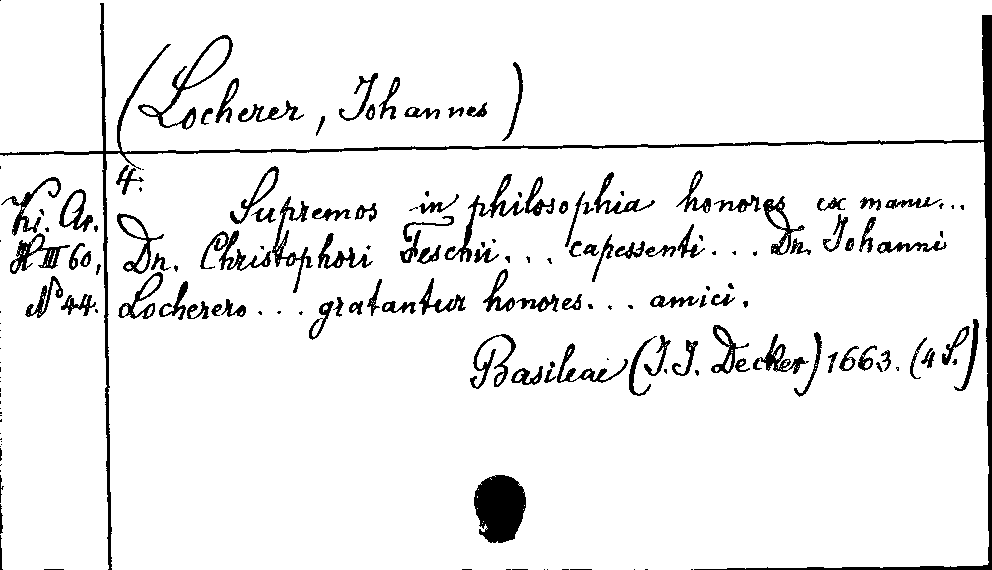 (Locherer, Johannes)
4:
Ki. Ar.
H III 60,
No 44.
Supremos in philosophia honores ex manu...
Dn. Christophori Feschii... capessenti... Dn. Johanni
Locherero... gratantur honores... amici.
Basileae (J.J. Decker) 1663. (4 S.)